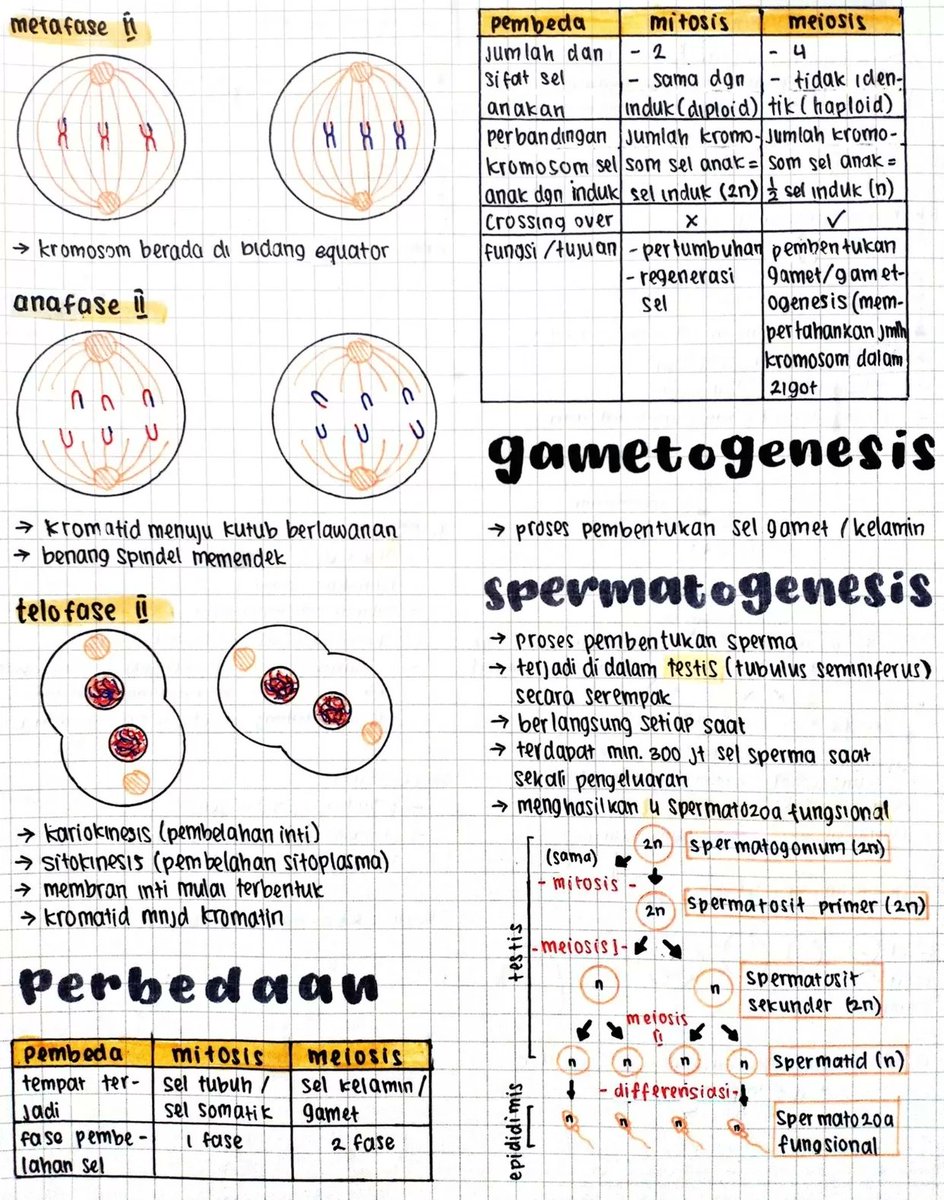 metafase II
→ kromosom berada di bidang equator
anafase II
→ kromatid menuju kutub berlawanan
→ benang spindel memendek
telofase II
→ kariokinesis (pembelahan inti)
→ sitokinesis (pembelahan sitoplasma)
→ membran inti mulai terbentuk
→ kromatid mnjd kromatin
perbedaan
pembeda mitosis meiosis
tempat ter- sel tubuh / sel kelamin /
jadi sel somatik gamet
fase pembe- 1 fase 2 fase
lahan sel
pembeda mitosis meiosis
jumlah dan - 2 - 4
sifat sel - sama dgn - tidak iden-
anakan induk (diploid) tik (haploid)
perbandingan jumlah kromo- jumlah kromo-
kromosom sel som sel anak = som sel anak =
anak dgn induk sel induk (2n) ½ sel induk (n)
crossing over × ✓
fungsi / tujuan - pertumbuhan pembentukan
- regenerasi gamet/gamet-
sel ogenesis (mem-
pertahankan jmlh
kromosom dalam
zigot
gametogenesis
→ proses pembentukan sel gamet / kelamin
spermatogenesis
→ proses pembentukan sperma
→ terjadi di dalam testis (tubulus seminiferus)
secara serempak
→ berlangsung setiap saat
→ terdapat min. 300 jt sel sperma saat
sekali pengeluaran
→ menghasilkan 4 spermatozoa fungsional
2n spermatogonium (2n)
(sama)
- mitosis -
2n spermatosit primer (2n)
testis
- meiosis I -
n n spermatosit
sekunder (2n)
meiosis
II
n n n n spermatid (n)
- differensiasi -
epididimis
n n n n spermatozoa
fungsional